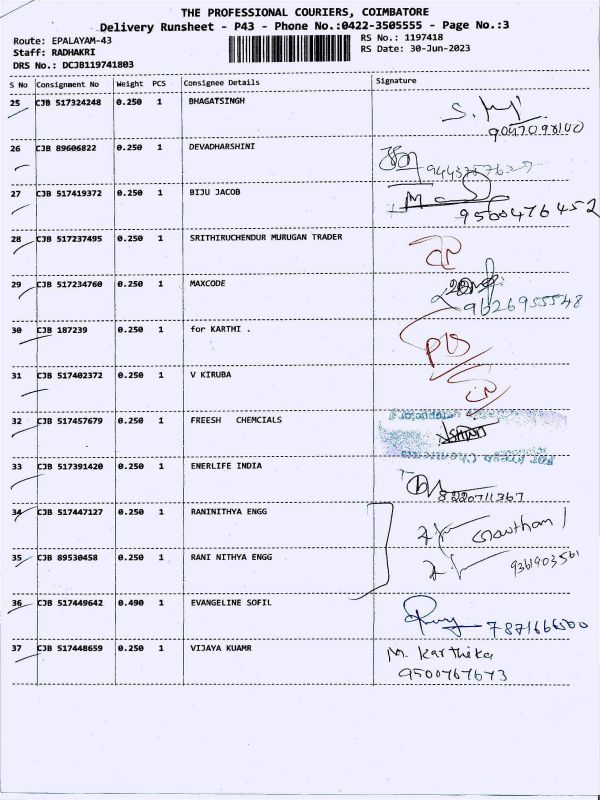 THE PROFESSIONAL COURIERS, COIMBATORE
Delivery Runsheet - P43 - Phone No.:0422-3505555 - Page No.:3
Route: EPALAYAM-43 RS No.: 1197418
Staff: RADHAKRI RS Date: 30-Jun-2023
DRS No.: DCJB119741803
S No Consignment No Weight PCS Consignee Details Signature
25 CJB 517324248 0.250 1 BHAGATSINGH
26 CJB 89606822 0.250 1 DEVADHARSHINI
27 CJB 517419372 0.250 1 BIJU JACOB
9500476452
28 CJB 517237495 0.250 1 SRITHIRUCHENDUR MURUGAN TRADER
29 CJB 517234760 0.250 1 MAXCODE
9626955548
30 CJB 187239 0.250 1 for KARTHI .
31 CJB 517402372 0.250 1 V KIRUBA
32 CJB 517457679 0.250 1 FREESH CHEMCIALS
33 CJB 517391420 0.250 1 ENERLIFE INDIA
8220711367
34 CJB 517447127 0.250 1 RANINITHYA ENGG
Gowtham
35 CJB 89530458 0.250 1 RANI NITHYA ENGG
36 CJB 517449642 0.490 1 EVANGELINE SOFIL
7871666500
37 CJB 517448659 0.250 1 VIJAYA KUAMR M. Karthika
9500767673